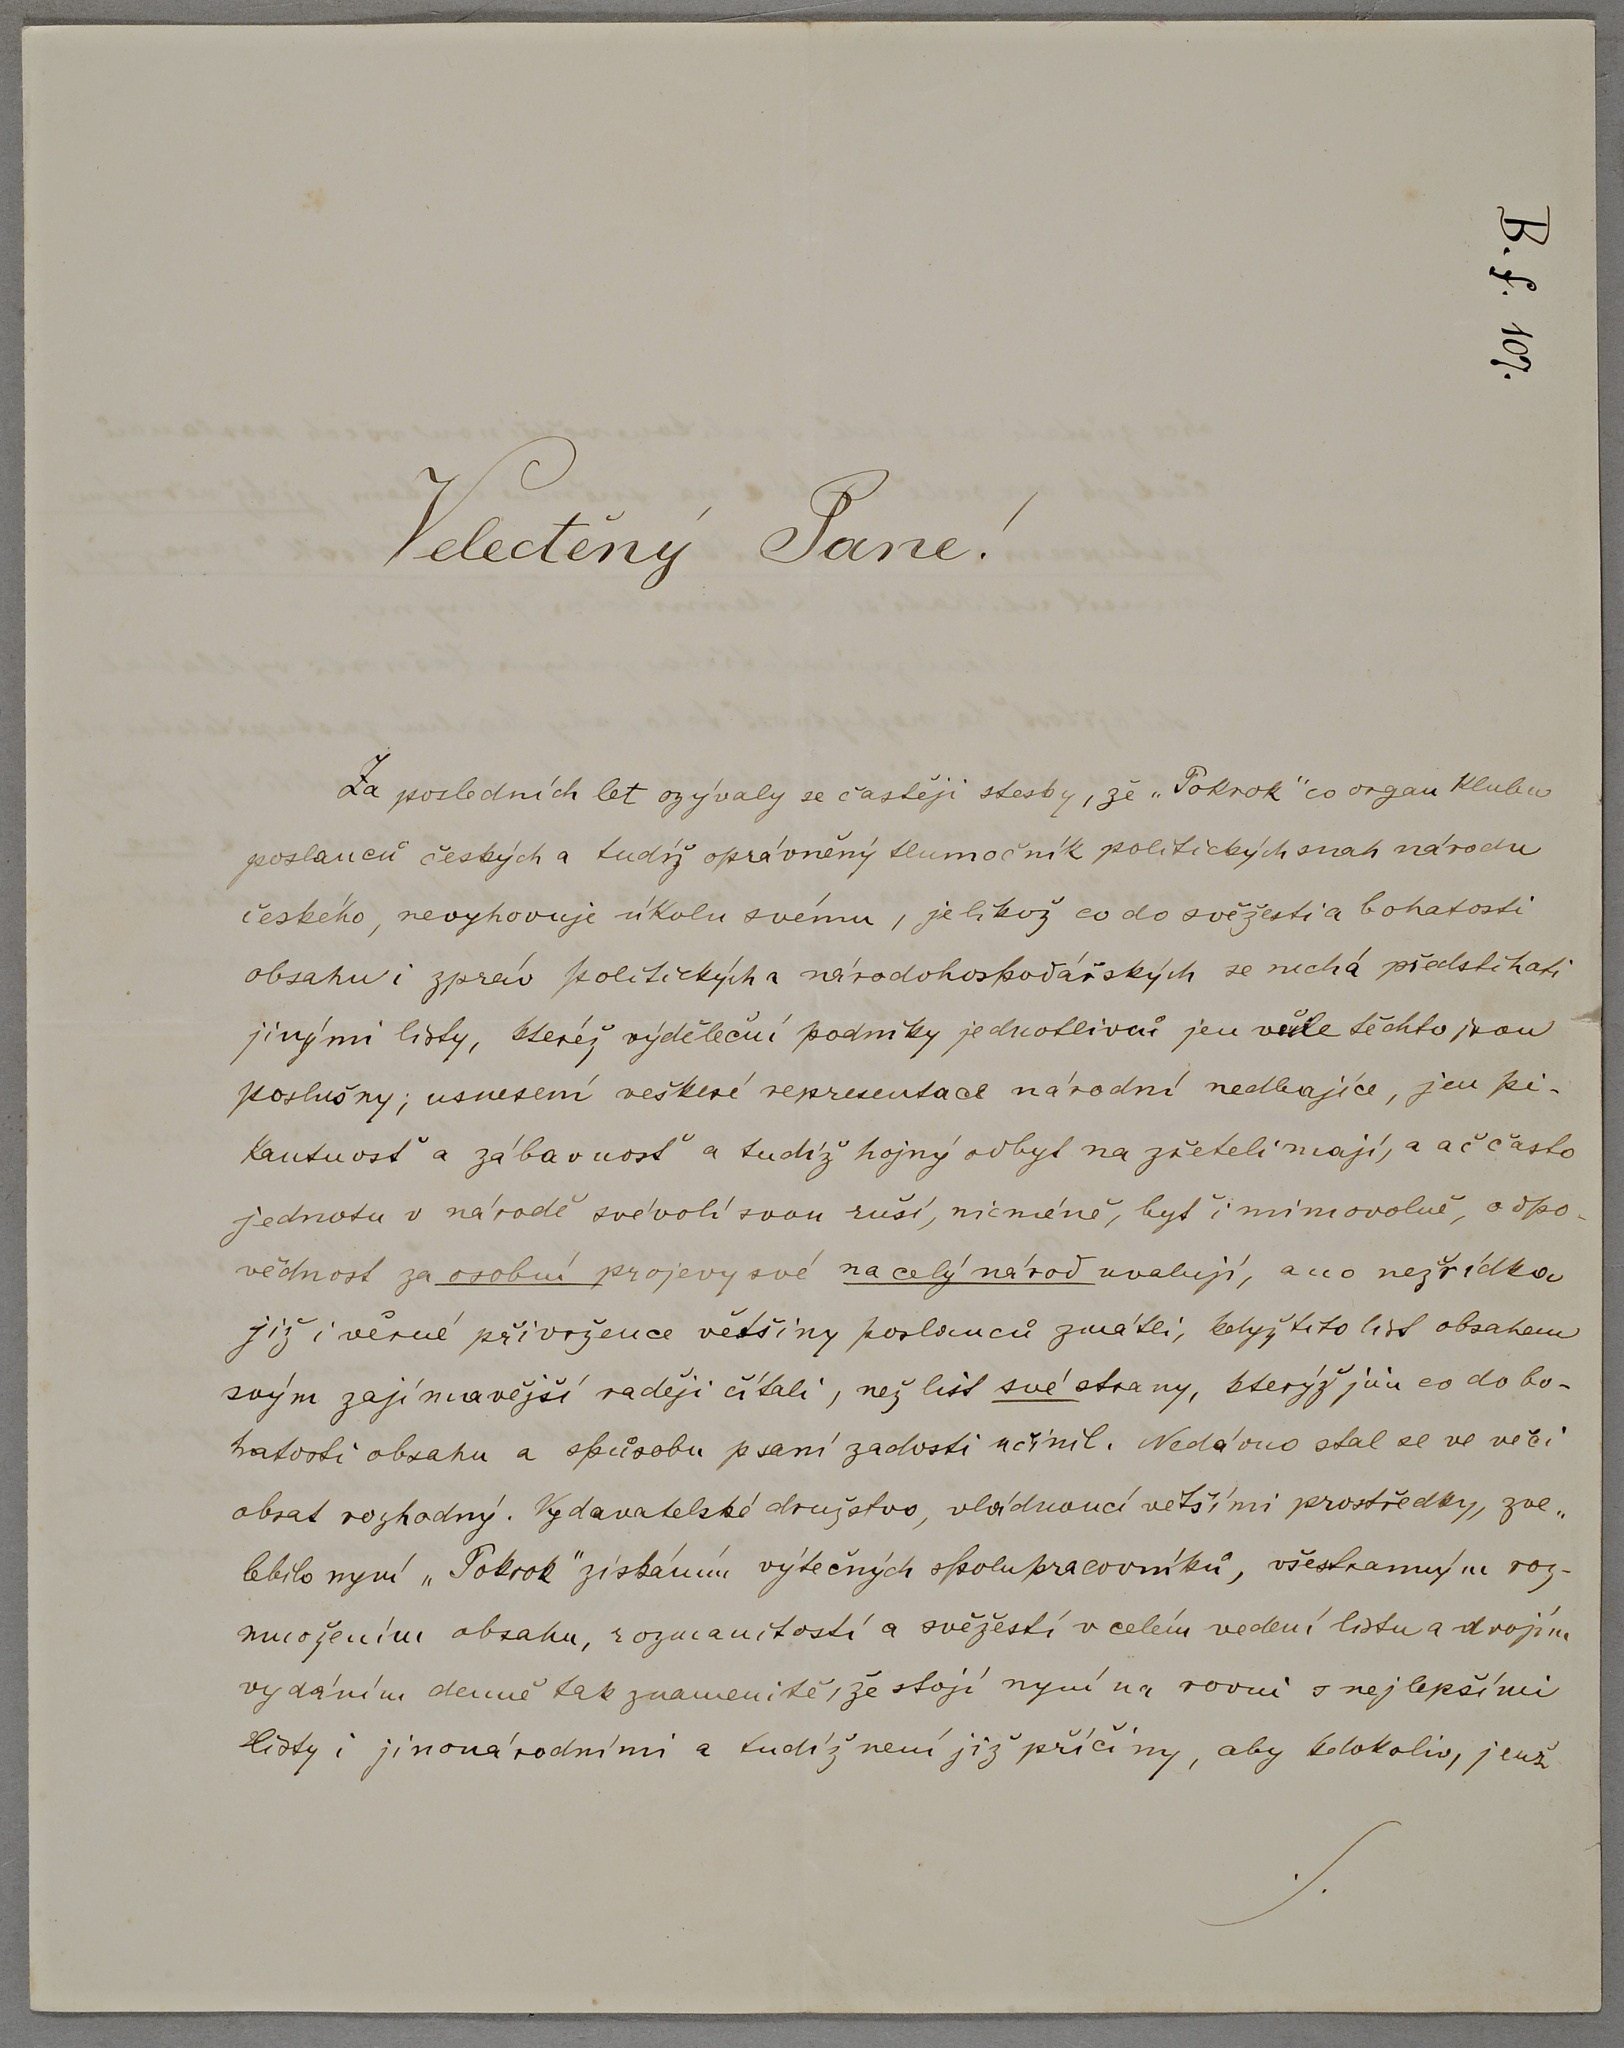 B. f. 107.
Velectěný Pane!
Za posledních let ozývaly se častěji stesky, že „Pokrok" co organ klubu
poslanců českých a tudíž oprávněný tlumočník politických snah národu
českého, nevyhovuje úkolu svému, jelikož co do svěžesti a bohatosti
obsahu i zpráv politických a národohospodářských se nechá předstihati
jinými listy, kteréž výděleční podniky jednotlivců jen vůle těchto jsou
poslušny; usnesení veškeré representace národní nedbajíce, jen pi-
kantnosť a zábavnosť a tudíž hojný odbyt na zřeteli mají, a ač často
jednotu v národě svévolí svou ruší, nicméně, byť i mimovolně, odpo-
vědnost za osobní projevy své na celý národ uvalují, ano nezřídka
již i věrné přivržence většiny poslanců zmátli, když tito list obsahem
svým zajímavější raději čítali, než list své strany, kterýž jim co do bo-
hatosti obsahu a spůsobu psaní zadosti učinil. Nedávno stal se ve věci
obrat rozhodný. Vydavatelské družstvo, vládnoucí většími prostředky, zve„
lebilo nyní „Pokrok" získáním výtečných spolupracovníků, všestranným roz-
množením obsahu, rozmanitostí a svěžestí v celém vedení listu a dvojím
vydáním denně tak znamenitě, že stojí nyní na rovni s nejlepšími
listy i jinonárodními a tudíž není již příčiny, aby kdokoliv, jenž
./.